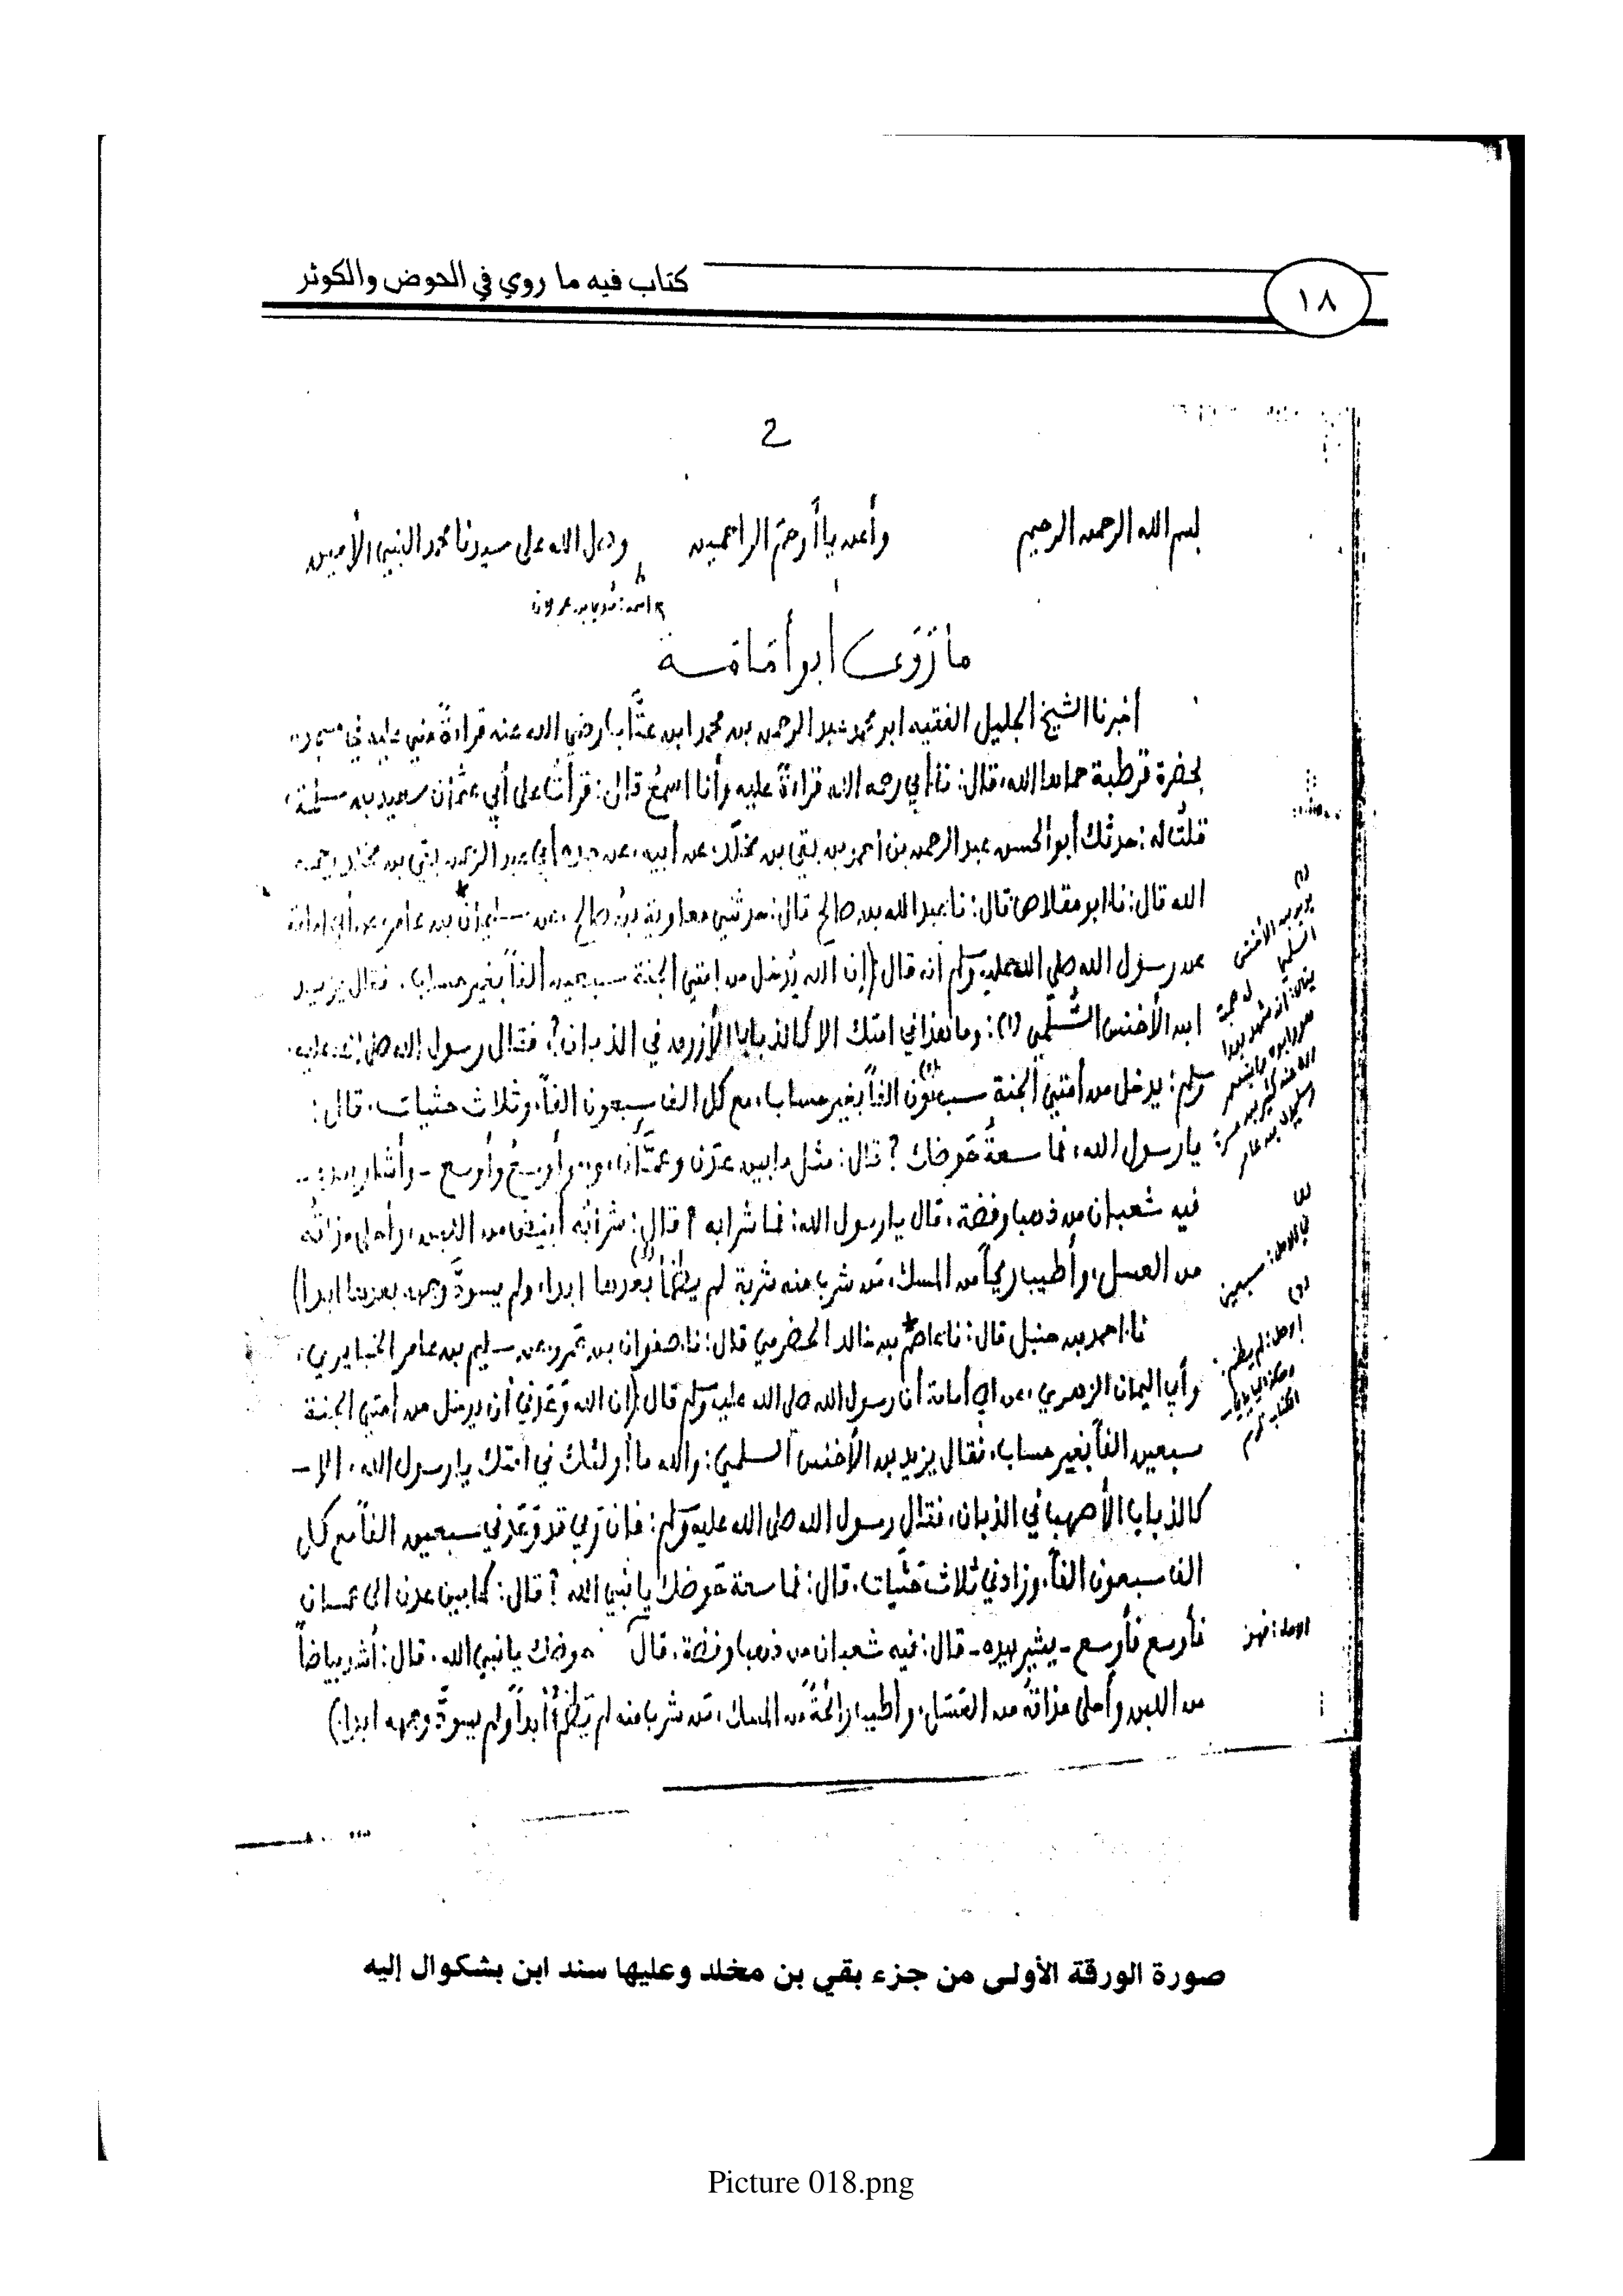 كتاب فيه ما روي في الحوض والكوثر
١٨
2
بسم الله الرحمن الرحيم وأعن يا أرحم الراحمين وصلى الله على سيدنا محمد النبي الأمين
ما رَوَى أبو أُمَامَة
أخبرنا الشيخ الجليل الفقيه ابو محمد عبد الرحمن بن محمد ابن عتَّاب رضي الله عنه قراءةً مني عليه في مسجده
بحضرة قرطبة حماها الله، قال: نا أبي رحمه الله قراءةً عليه وأنا اسمعُ قال: قرأتُ على أبي عثمان سعيد بن سلمة،
قلتُ له: حدثك أبو الحسن عبد الرحمن بن احمد بن بقي بن مخلد، عن أبيه، عن جده أبي عبد الرحمن بقي بن مخلد رحمه
الله قال: نا ابو مقلاص قال: نا عبد الله بن صالح قال: حدثني معاوية بن صالح، عن سليمان بن عامر، عن أبي امامة
عن رسول الله صلى الله عليه وسلم أنه قال: (إن الله يُدخل من امتي الجنة سبعين ألفاً بغير حساب، فقال يزيد
ابن الأخنس السُّلَمي (١): وما هذا في امتك الا كالذباب الأزرق في الذبان؟، فقال رسول الله صلى الله عليه
وسلم: يدخل من أمتي الجنة سبعون الفاً بغير حساب، مع كل الف سبعون الفاً، وثلاث حثيات، قال:
يا رسول الله، فما سعةُ حَوضك؟ قال: مثل ما بين عَدَن وعمَّان، وأوسعُ وأوسع - وأشار بيده -
فيه شعبان من ذهب وفضة، قال يا رسول الله: فما شرابه؟ قال: شرابُه أبيض من اللبن، وأحلى مذاقةً
من العسل، وأطيب ريحاً من المسك، مَن شرب منه شربة لم يظمأ بعدها ابدا، ولم يسودَّ وجهه بعدها ابداً)
نا احمد بن حنبل قال: نا عاصم بن خالد الحضرمي قال: نا صفوان بن عمرو، عن سليم بن عامر الخبايري،
وأبي اليمان الهوزني، عن ابي أمامة أن رسول الله صلى الله عليه وسلم قال: (إن الله وَعَدَني أن يدخل من أمتي الجنة
سبعين الفاً بغير حساب، فقال يزيد بن الأخنس السلمي: والله ما أولئك في امتك يا رسول الله، الا -
كالذباب الأصهب في الذبان، فقال رسول الله صلى الله عليه وسلم: فإن ربي قد وَعَدَني سبعين الفاً مع كل
الف سبعون الفاً، وزادني ثلاث حَثَيات، قال: فما سعة حَوضك يا نبي الله؟ قال: كما بين عدن الى عمان
فأوسع فأوسع - يشير بيده - قال: فيه شعبان من ذهب وفضة، قال حوضك يا نبي الله، قال: أشد بياضاً
من اللبن وأحلى مذاقةً من العَسَل، وأطيب رائحةً من المسك، مَن شرب منه لم يَظمأ أبداً ولم يسودَّ وجهه ابدا)
(١)
يزيد بن الأخنس
السلمي
له صحبة
يقال: انه شهد بدرا
في الاصل: سبعين
صورة الورقة الأولى من جزء بقي بن مخلد وعليها سند ابن بشكوال إليه
Picture 018.png